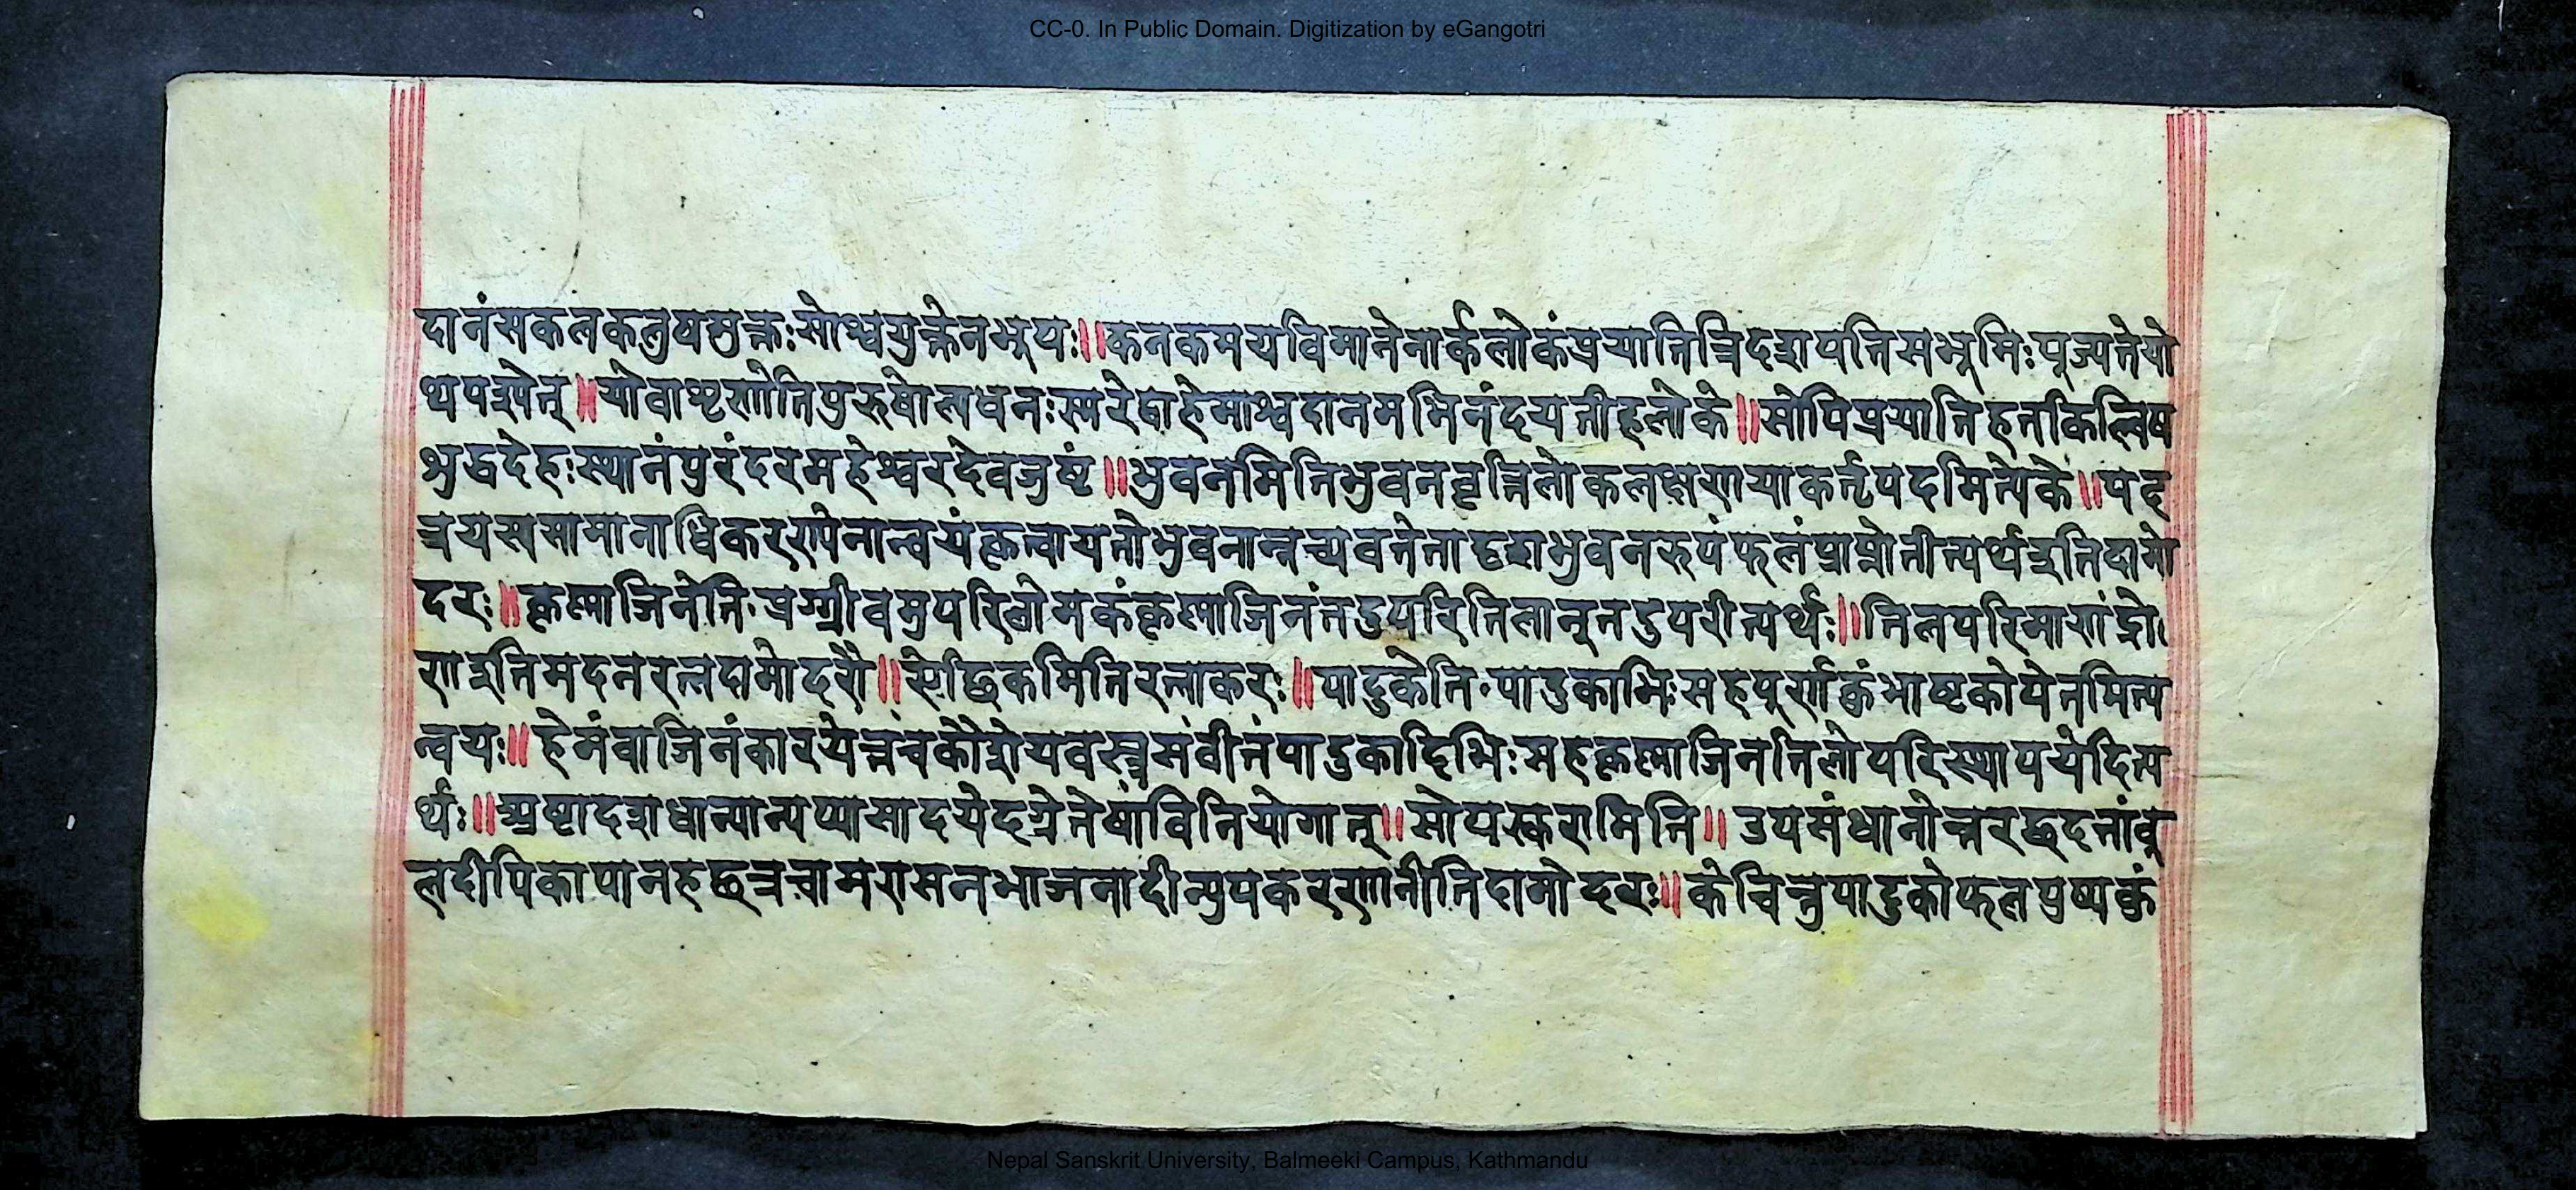 CC-0. In Public Domain. Digitization by eGangotri
दानंसकलकलुषमुक्तःसोश्वयुक्तेनभूयः॥कनकमयविमानेनार्कलोकंप्रयातित्रिदशपतिसभूमिःपूज्यतेयो
थपश्येत्॥योवाशृणोतिपुरुषोल्पधनःस्मरेद्वाहेमाश्वदानमभिनंदयतीहलोके॥सोपिप्रयातिहतकिल्विष
शुद्धदेहःस्थानंपुरंदरमहेश्वरदेवजुष्टं॥भुवनमितिभुवनवृत्तिलोकलक्षणयाकर्तृपदमित्येके॥पद
त्रयस्यसामानाधिकरण्येनान्वयंकृत्वायतोभुवनान्नच्यवतेतादृशभुवनरुपंफलंप्राप्नोतीत्यर्थइतिदामो
दरः॥कृष्णाजिनेति॰प्रग्ग्रीवमुपरिलोमकंकृष्णाजिनंतदुपरितिलान्तदुपरीत्यर्थः॥तिलपरिमाणंद्रो
णइतिमदनरत्नदामोदरौ॥सोद्धिकमितिरत्नाकरः॥पादुकेति॰पादुकाभिःसहपूर्णकुंभाष्टकोपेतमित्य
न्वयः॥हेमंवाजिनंकारयेत्तंचकौशेयवस्त्रसंवीतंपादुकादिभिःसहकृष्णाजिनतिलोपरिस्थापयेदित्य
र्थः॥अष्टादशधान्यान्यप्यासादयेदग्रेतेषांविनियोगात्॥सोपस्करामिति॥उपसंधानोत्तरछदतांबू
लदीपिकापानहछत्रचामरासनभाजनादीन्युपकरणानीतिदामोदरः॥केचित्तुपादुकोफलपुष्पकुं
Nepal Sanskrit University, Balmeeki Campus, Kathmandu